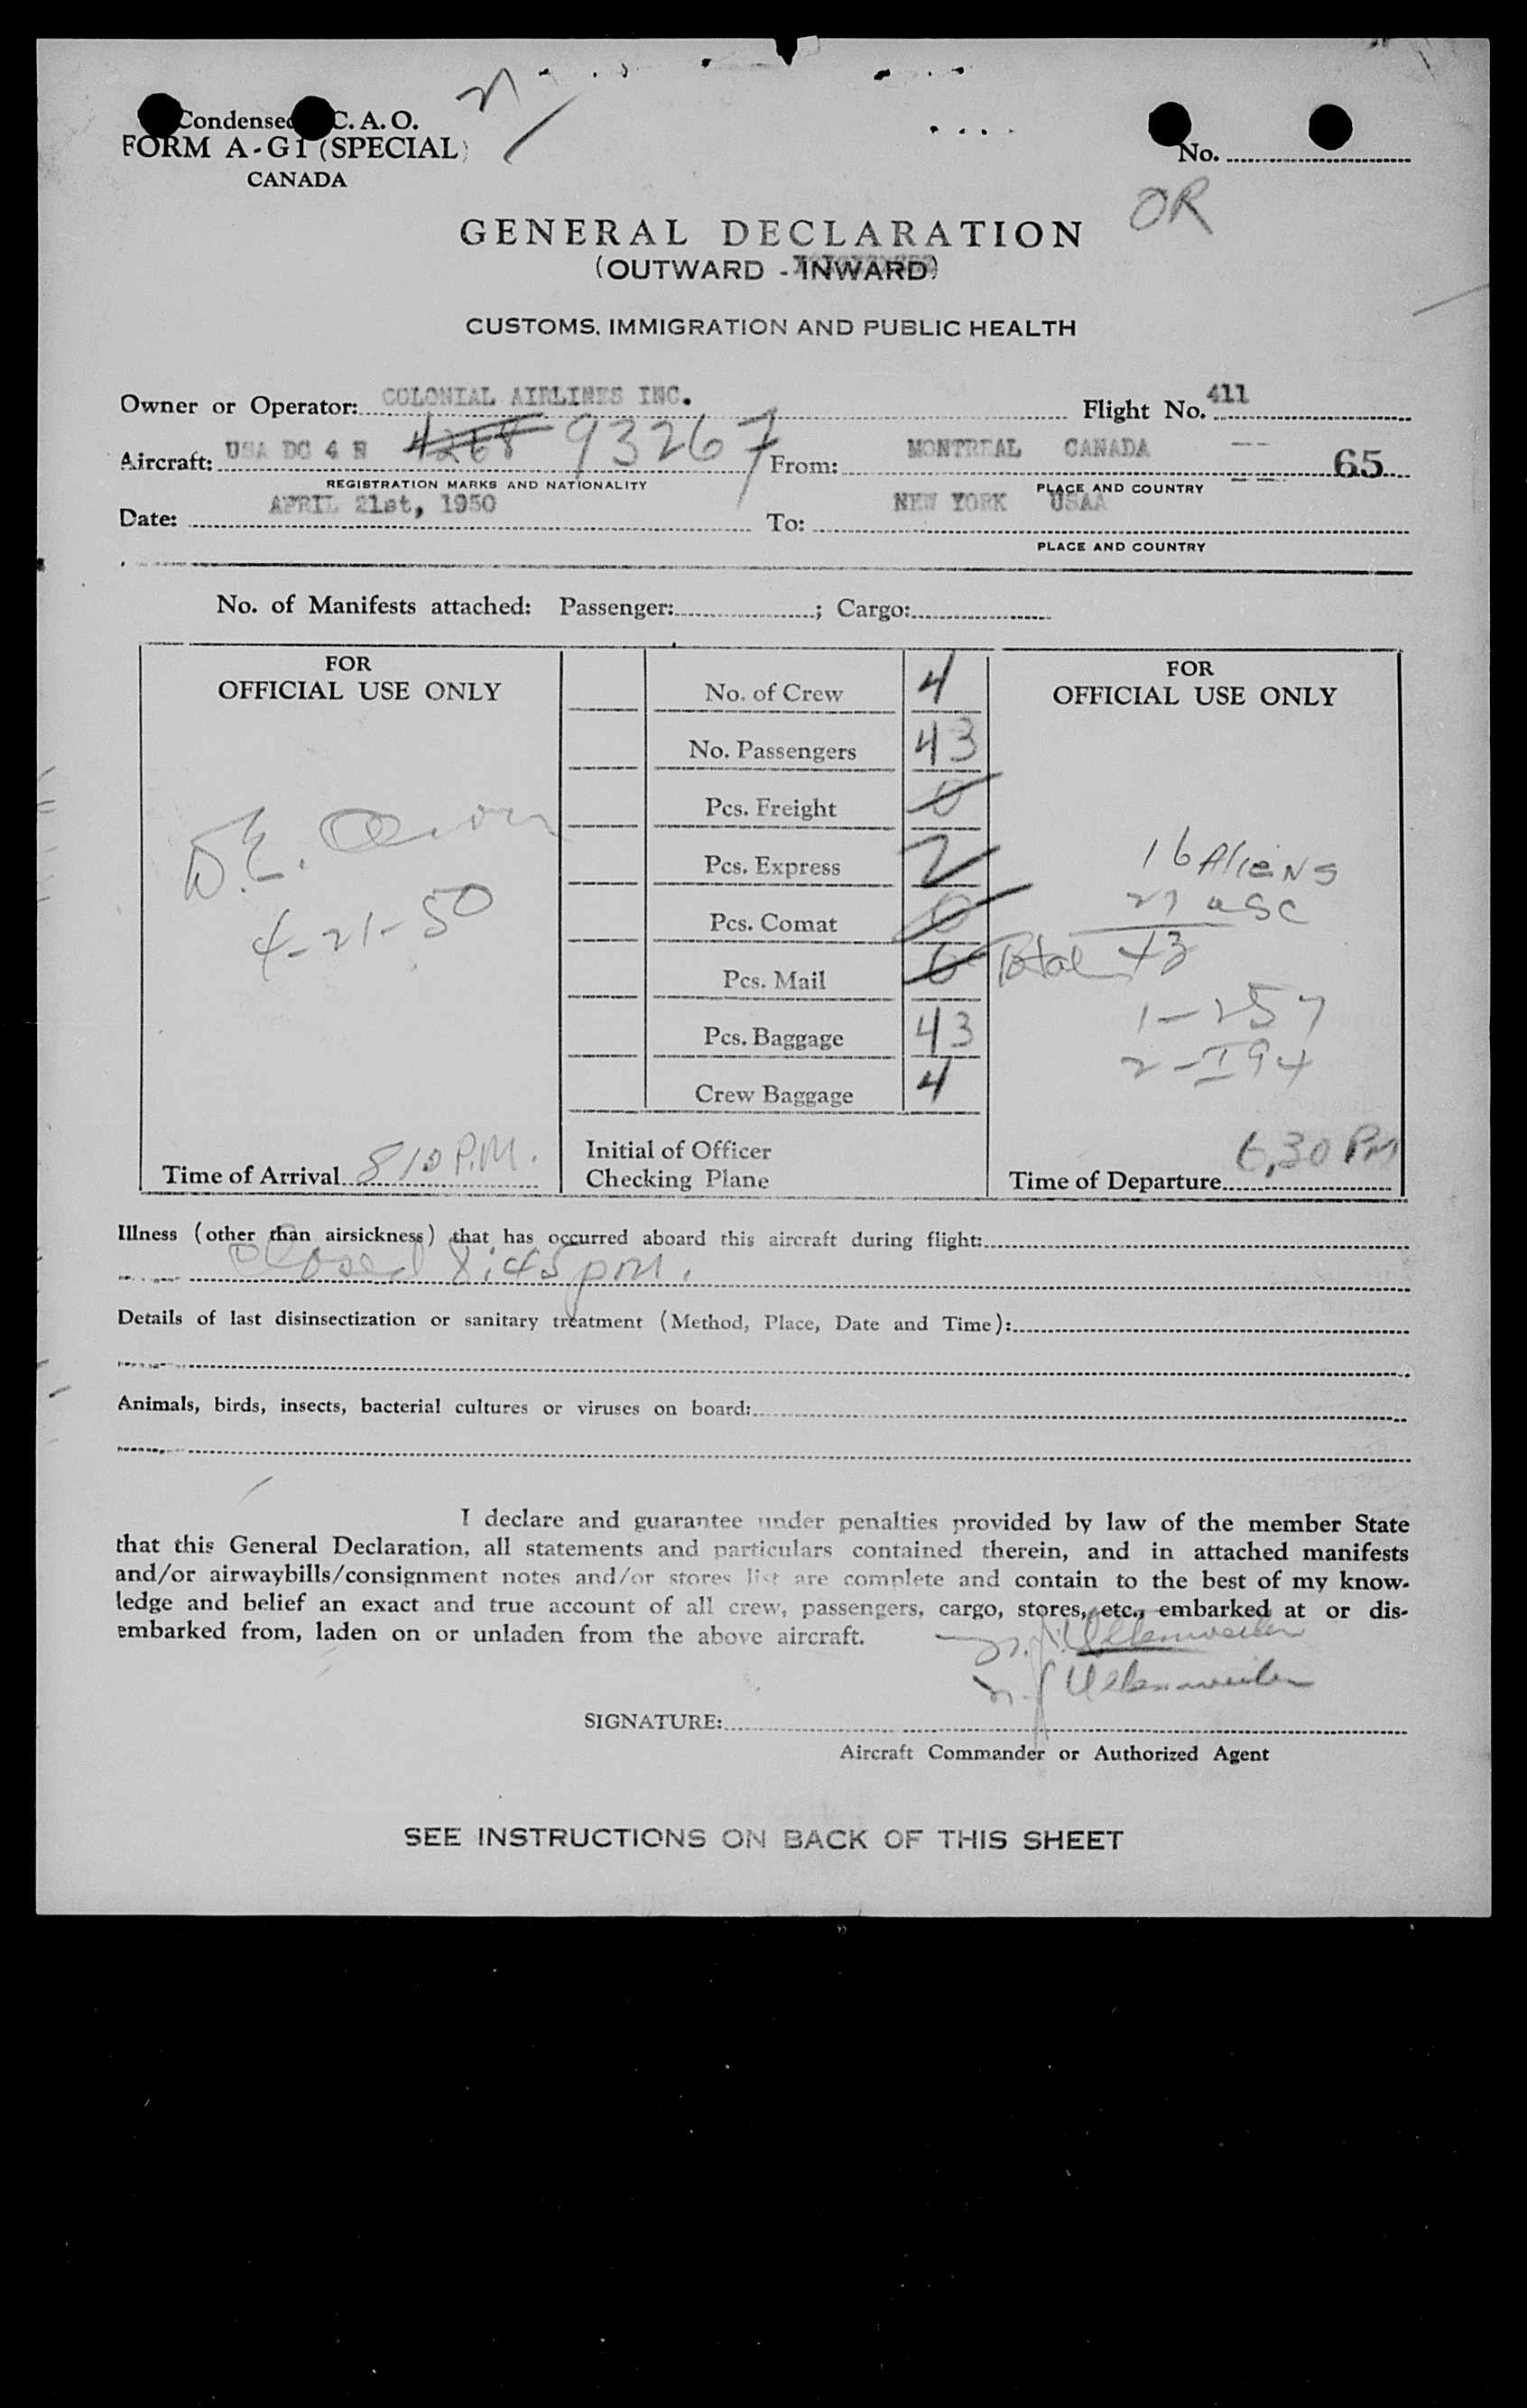 Condensed C. A. O.
FORM A-G1 (SPECIAL)
CANADA
No.
OR
GENERAL DECLARATION
(OUTWARD - INWARD)
CUSTOMS, IMMIGRATION AND PUBLIC HEALTH
Owner or Operator: COLONIAL AIRLINES INC. Flight No. 411
Aircraft: USA DC 4 N 4268 93267 From: MONTREAL CANADA -- 65
REGISTRATION MARKS AND NATIONALITY PLACE AND COUNTRY
Date: APRIL 21st, 1950 To: NEW YORK USAA
PLACE AND COUNTRY
No. of Manifests attached: Passenger: ; Cargo:
FOR
OFFICIAL USE ONLY
D.E.
4-21-50
Time of Arrival 810 P.M.
No. of Crew 4
No. Passengers 43
Pcs. Freight 0
Pcs. Express 2
Pcs. Comat 0
Pcs. Mail 0
Pcs. Baggage 43
Crew Baggage 4
Initial of Officer
Checking Plane
FOR
OFFICIAL USE ONLY
16 Aliens
27 USC
Total 43
1-257
2-I94
Time of Departure 6,30 PM
Illness (other than airsickness) that has occurred aboard this aircraft during flight:
Closed 8:45 pm.
Details of last disinsectization or sanitary treatment (Method, Place, Date and Time):
Animals, birds, insects, bacterial cultures or viruses on board:
I declare and guarantee under penalties provided by law of the member State
that this General Declaration, all statements and particulars contained therein, and in attached manifests
and/or airwaybills/consignment notes and/or stores list are complete and contain to the best of my know-
ledge and belief an exact and true account of all crew, passengers, cargo, stores, etc., embarked at or dis-
embarked from, laden on or unladen from the above aircraft.
SIGNATURE:
Aircraft Commander or Authorized Agent
SEE INSTRUCTIONS ON BACK OF THIS SHEET